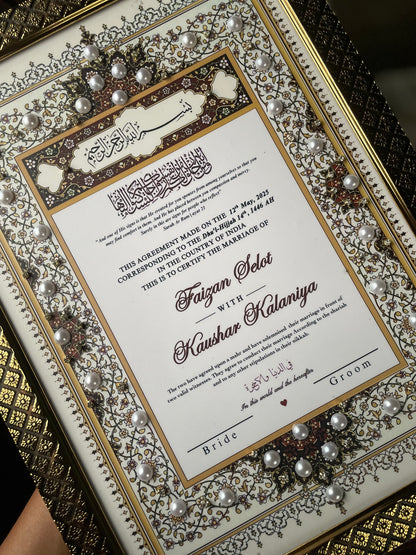 بسم الله الرحمن الرحيم
"And one of His signs is that He created for you mates from among yourselves so that you
may find comfort in them. And He has placed between you compassion and mercy.
Surely in this are signs for people who reflect"
THIS AGREEMENT MADE ON THE 12th May, 2025
CORRESPONDING TO THE Dhu'l-Hijjah 14th, 1446 AH
IN THE COUNTRY OF INDIA
THIS IS TO CERTIFY THE MARRIAGE OF
Faizan Selot
WITH
Kaushar Kalaniya
The two have agreed upon a mahr and have solemnized their marriage in front of
two valid witnesses. They agree to conduct their marriage According to the shariah
and to any other stipulations in their nikkah.
في الدنيا والآخرة
In this world and the hereafter
Bride
Groom